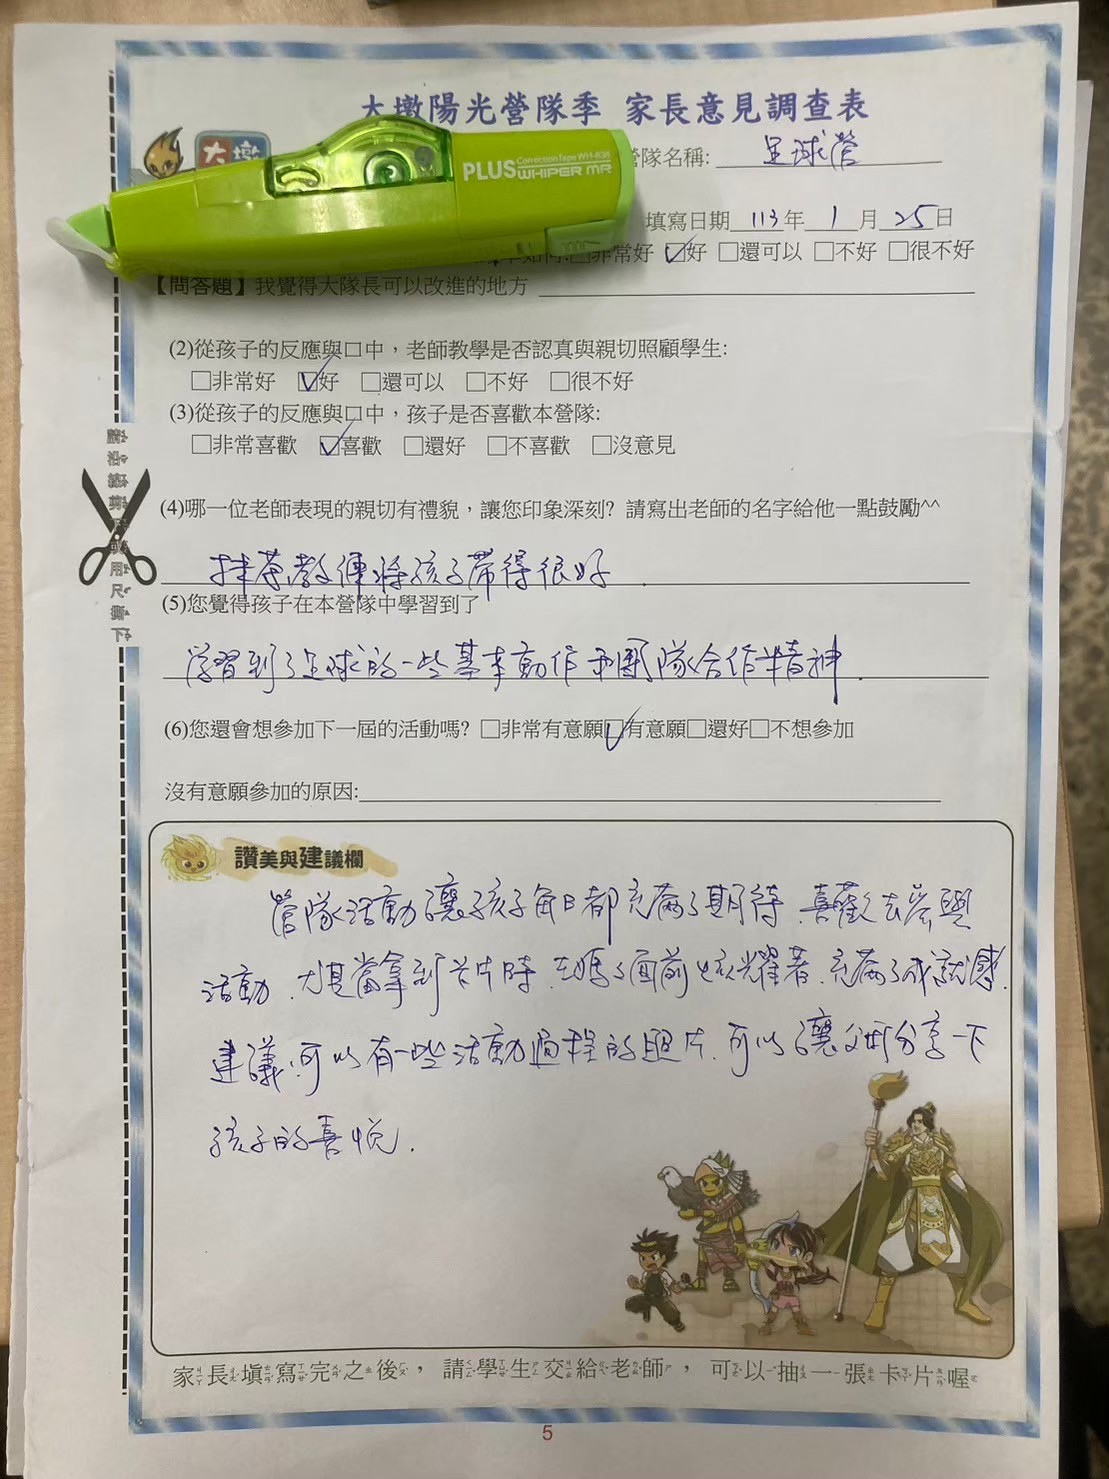 大墩陽光營隊季 家長意見調查表
大墩
營隊名稱: 足球營
PLUS Correction Tape WH-635
WHIPER MR
填寫日期 113 年 1 月 25 日
如何:□非常好 ☑好 □還可以 □不好 □很不好
【問答題】我覺得大隊長可以改進的地方
(2)從孩子的反應與口中，老師教學是否認真與親切照顧學生:
□非常好 ☑好 □還可以 □不好 □很不好
(3)從孩子的反應與口中，孩子是否喜歡本營隊:
□非常喜歡 ☑喜歡 □還好 □不喜歡 □沒意見
(4)哪一位老師表現的親切有禮貌，讓您印象深刻? 請寫出老師的名字給他一點鼓勵^^
教練將孩子帶得很好
(5)您覺得孩子在本營隊中學習到了
学習到了足球的一些基本動作和團隊合作精神.
(6)您還會想參加下一屆的活動嗎? □非常有意願☑有意願□還好□不想參加
沒有意願參加的原因:
讚美與建議欄
營隊活動讓孩子每日都充滿了期待.喜歡去參與
活動.尤其當拿到卡片時.在媽媽面前炫耀著.充滿了成就感.
建議:可以有一些活動過程的照片.可以讓父母分享一下
孩子的喜悅.
家長填寫完之後，請學生交給老師，可以抽一張卡片喔
5